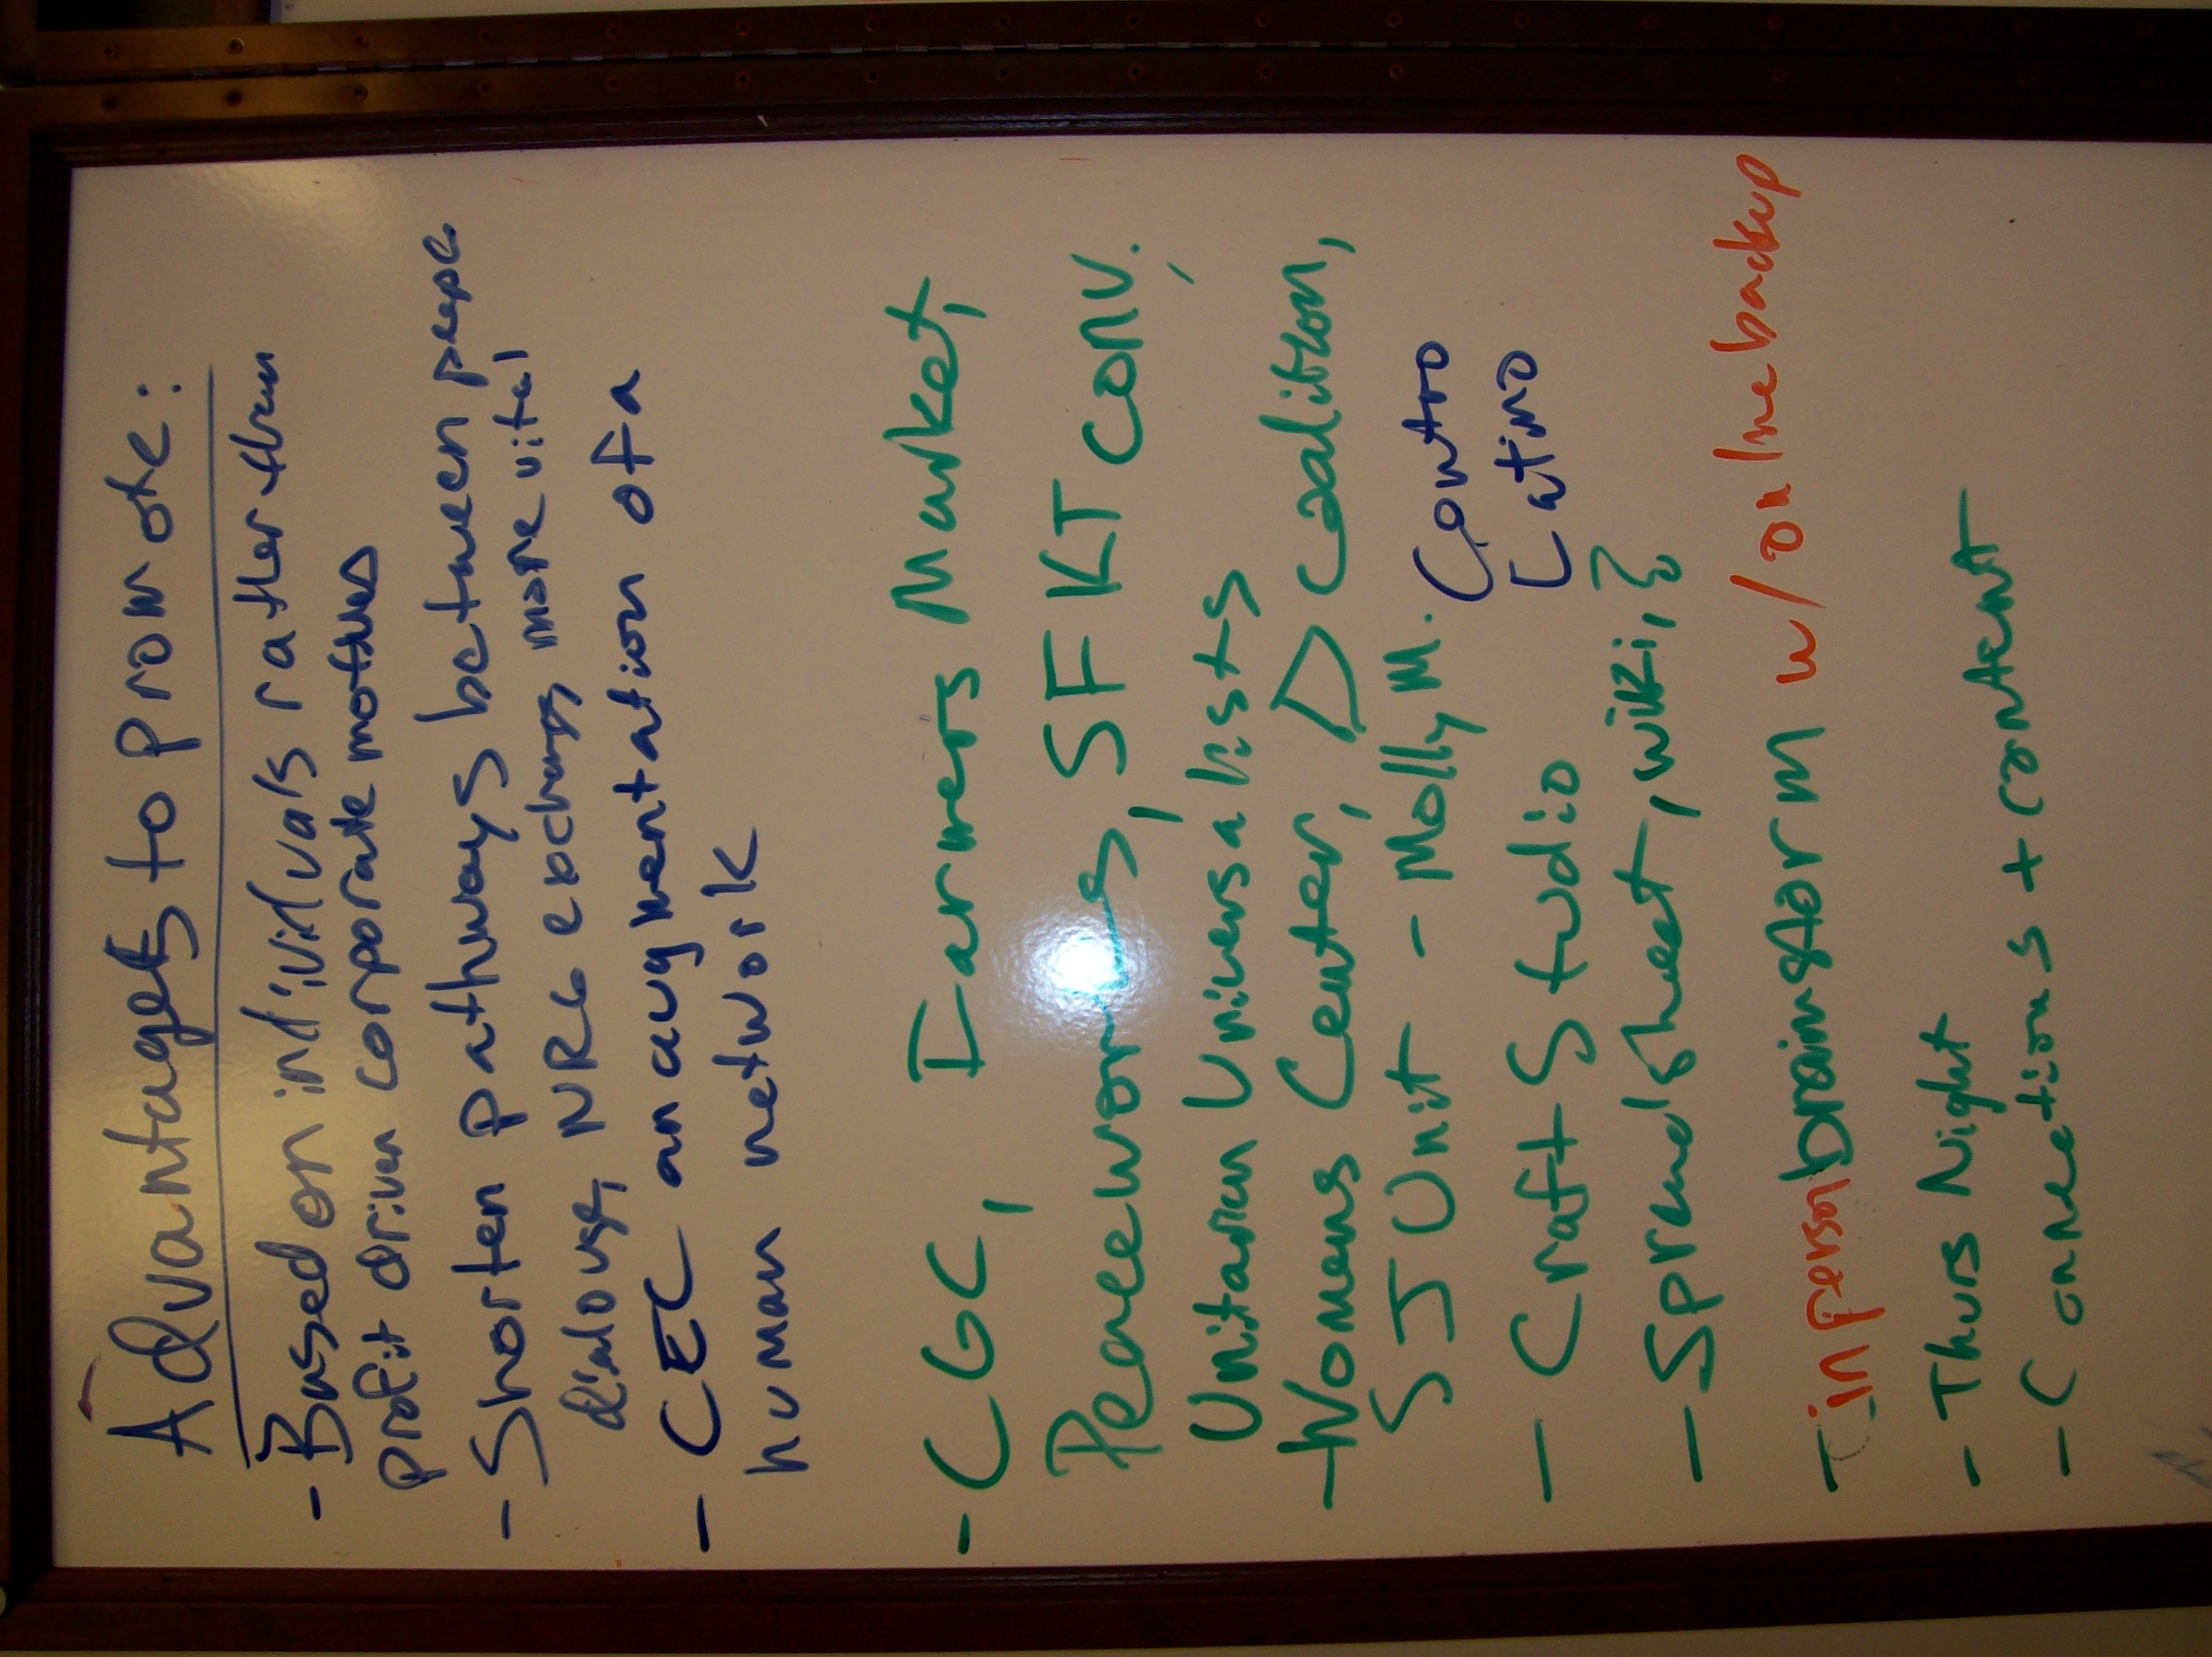 Advantages to promote:
- Based on individuals rather than
profit driven corporate motives
- Shorten Pathways between people
dialouge, NRG exchange more vital
- CEC an augmentation of a
human network
- CGC, Farmers Market,
Peaceworks, SFKT conv.,
Unitarian Universalists
- Womens Center, Coalition,
SJ Unit - Molly M. Centro
Latino
- Craft Studio
- Spreadsheet, wiki, ?
- in person brainstorm w/ online backup
- Thurs Night
- Connections + content